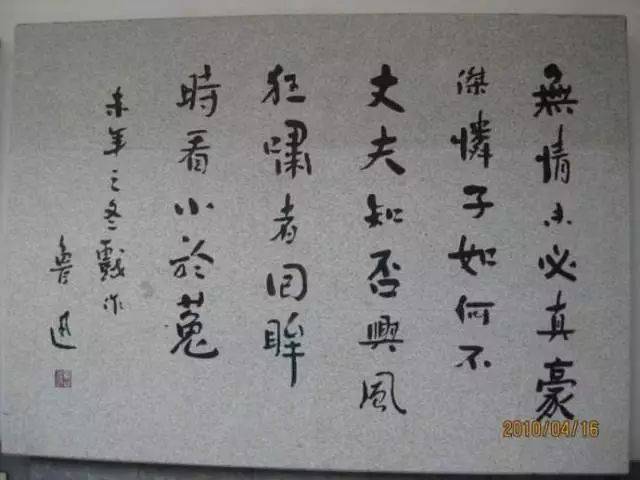 無情未必真豪
傑憐子如何不
丈夫知否興風
狂嘯者回眸
時看小於菟
未年之冬戲作
魯迅
2010/04/16